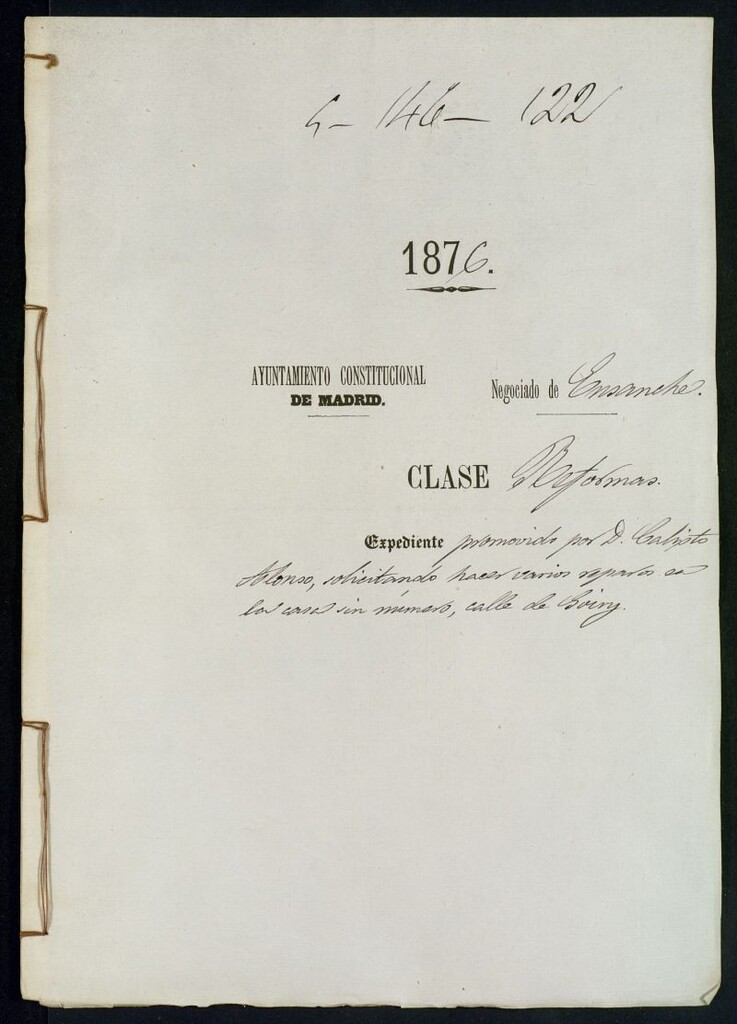 5 - 146 - 122
1876.
AYUNTAMIENTO CONSTITUCIONAL
DE MADRID.
Negociado de Ensanche.
CLASE Reformas.
Expediente promovido por D. Calisto
Alonso, solicitando hacer varios reparos en
la casa sin número, calle de